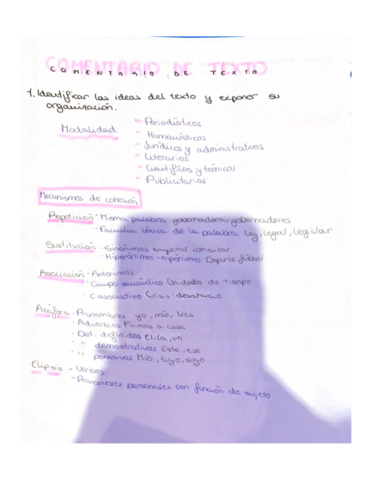 COMENTARIO DE TEXTO
1. Identificar las ideas del texto y exponer su
organización.
Modalidad
- Periodísticos
- Humanísticos
- Jurídicos y administrativos
- Literarios
- Científicos y técnicos
- Publicitarios
Mecanismos de cohesión
Repetición - Misma palabra gobernadores-gobernadores
- Familia léxica de la palabra Ley, legal, legislar
Sustitución - Sinónimos
- Hiperónimos - hipónimos Deporte fútbol
Asociación - Antónimos
- Campo semántico Unidades de tiempo
- C. asociativo Crisis: desahucio
Anáfora - Pronombres yo, mío,
- Adverbios Fuimos a casa
- Det. definidos El, la, un
- " demostrativos Este, ese
- " posesivos Mío, tuyo, suyo
Elipsis - Verbos
- Pronombres personales con función de sujeto